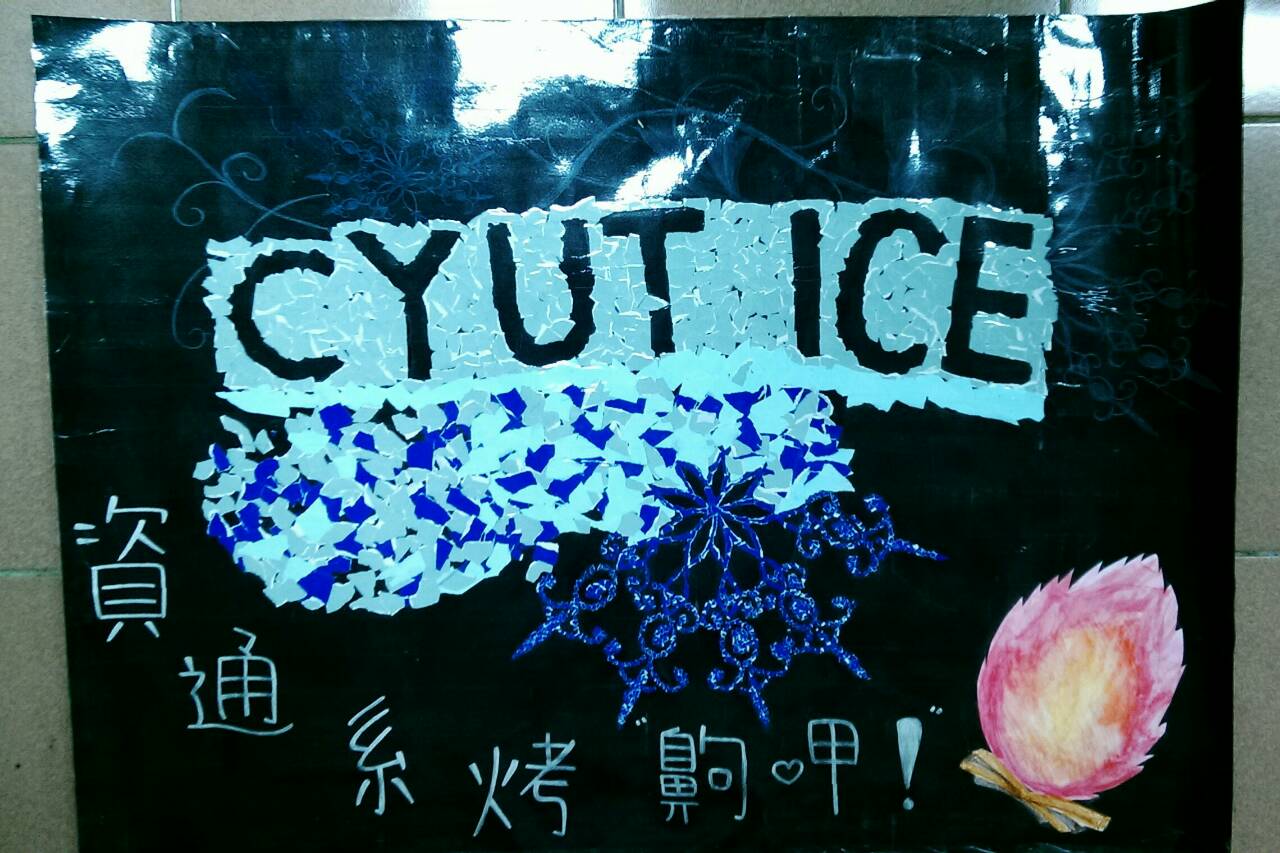 CYUT ICE
資通系烤"齁♡呷!"